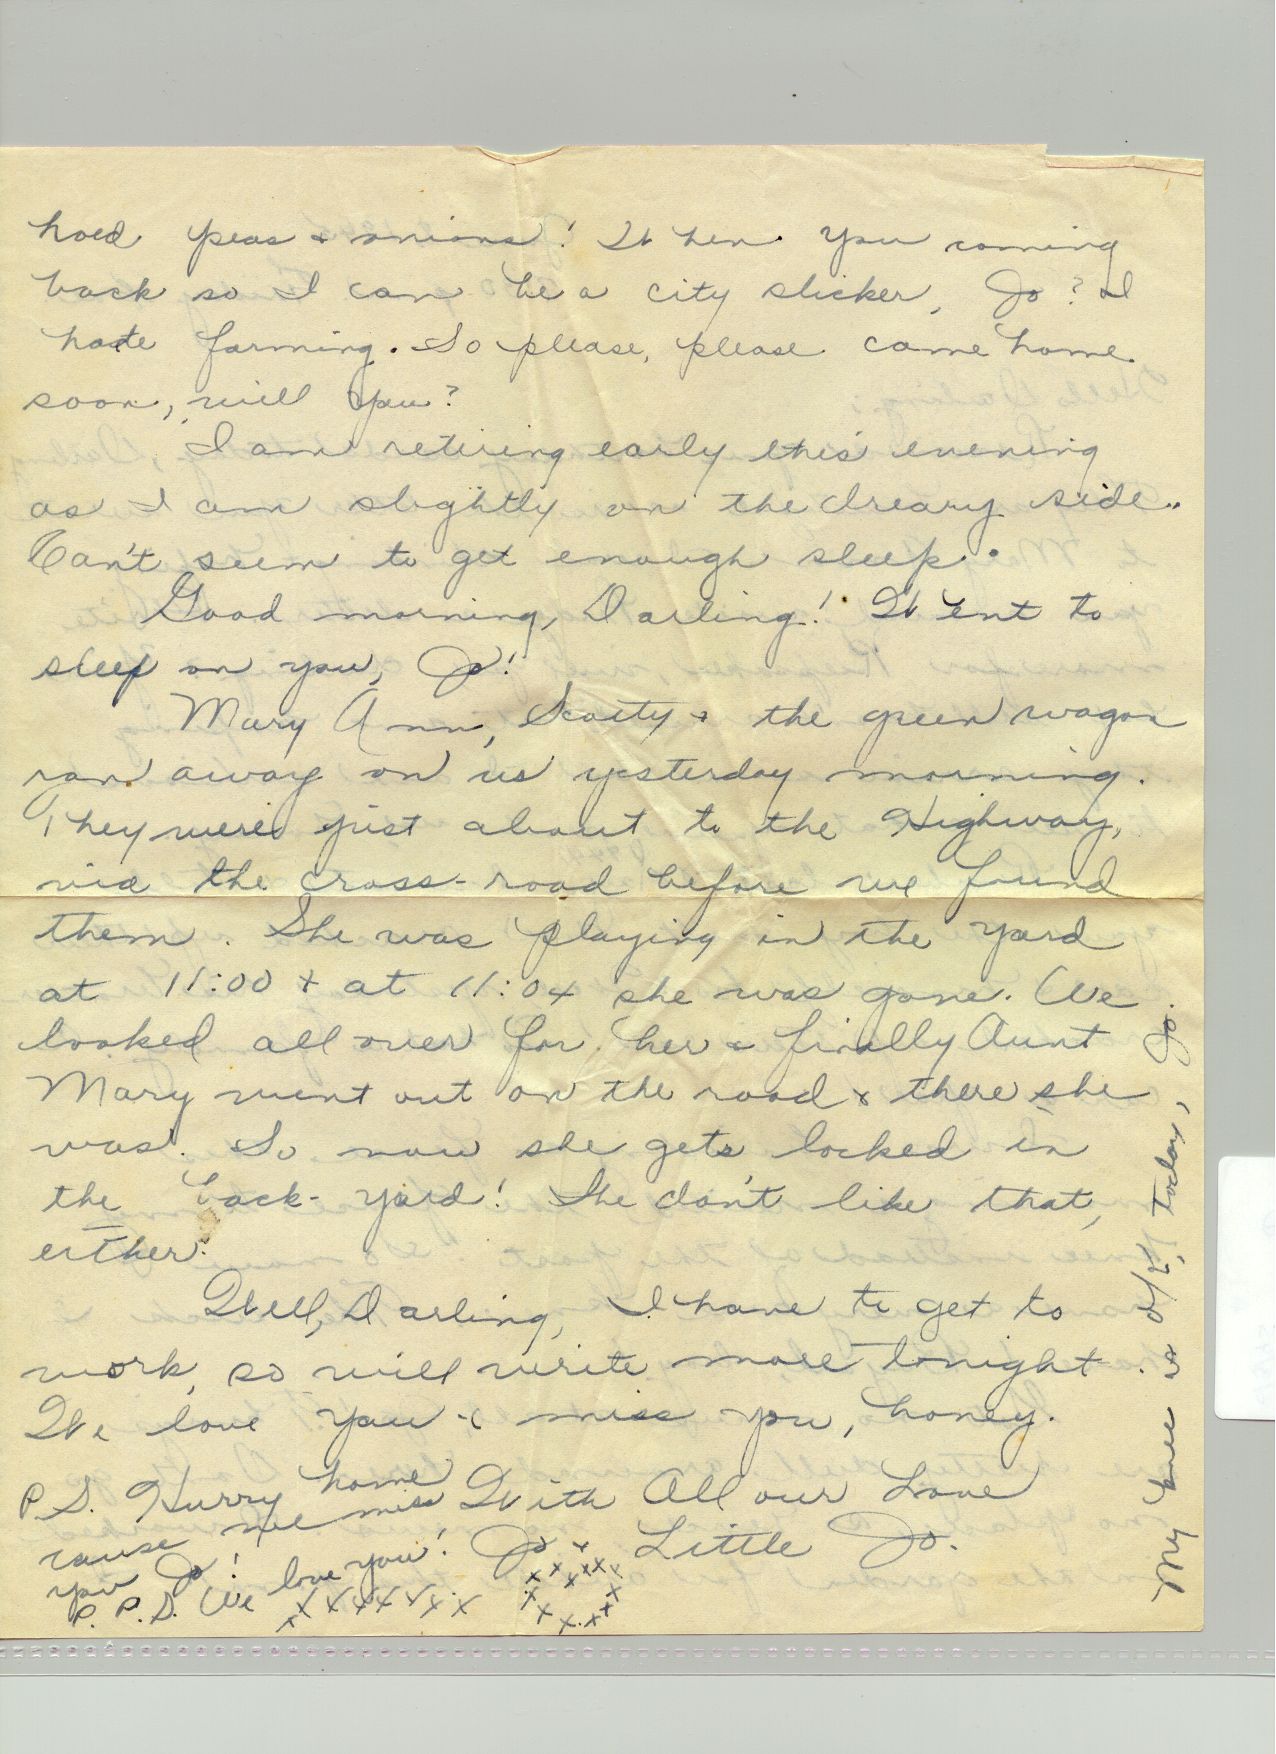 hoed peas & onions! When you coming
back so I can be a city slicker, Jo? I
hate farming. So please, please come home
soon, will you?
I am retiring early this evening
as I am slightly on the dreary side..
Can't seem to get enough sleep.
Good morning, Darling! Went to
sleep on you, Jo!
Mary Ann, Scotty & the green wagon
ran away on us yesterday morning.
They were just about to the Highway,
via the cross-road before we found
them. She was playing in the yard
at 11:00 & at 11:04 she was gone. We
looked all over for her & finally Aunt
Mary went out on the road & there she
was. So now she gets locked in
the back-yard! She don't like that,
either.
Well, Darling, I have to get to
work, so will write more tonight.
We love you & miss you, honey.
With All our Love
Jo & Little Jo.
xxxxxx
xxxxxxx
P.S. Hurry home
cause we miss
you Jo!
P.P.S. We love you!
xxxxxxxx
My knee is o/k, today, Jo.